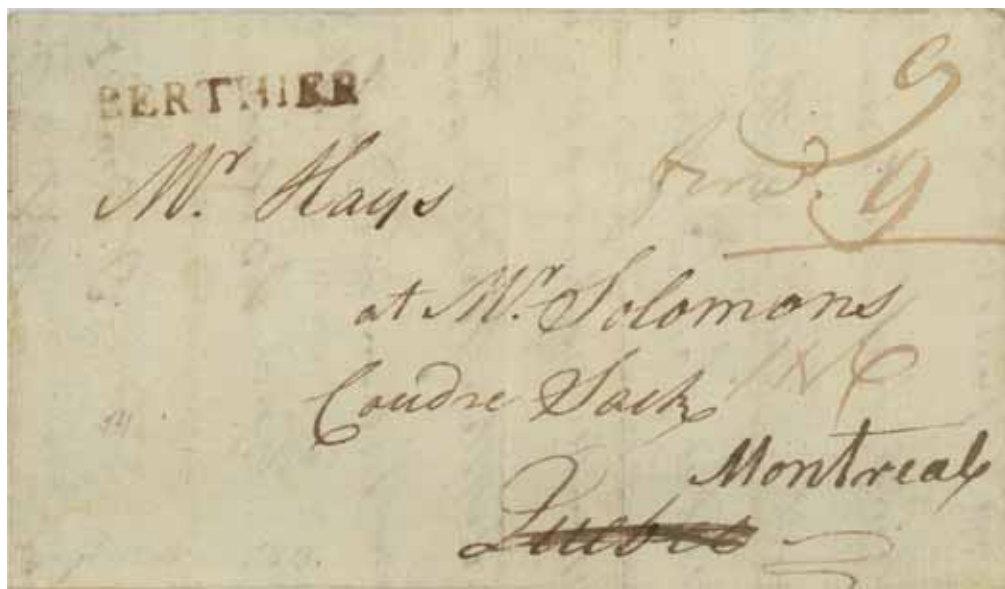 BERTHIER
9
9
Mr. Hays
at Mr. Solomons
Coudre Sack
Montreal
Quebec